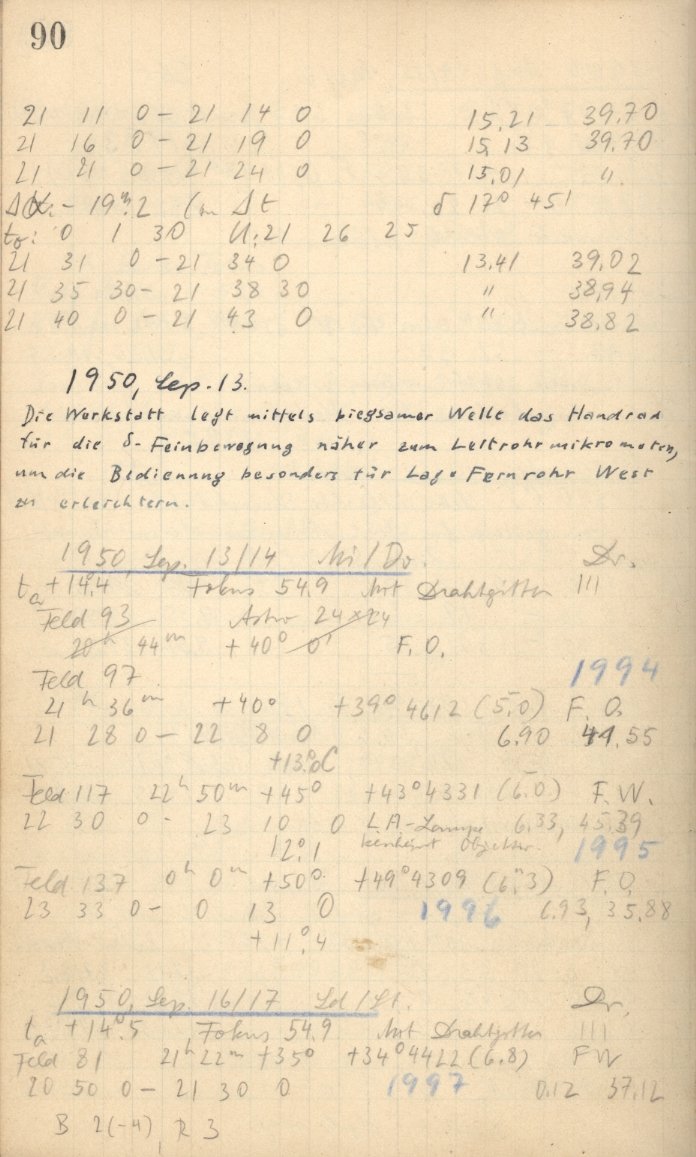 90
21 11 0 – 21 14 0 15,21 39,70
21 16 0 – 21 19 0 15,13 39,70
21 21 0 – 21 24 0 15,01 "
Δα: – 19ᵐ,2 Δt δ 17° 45'
t₀: 0 1 30 U: 21 26 25
21 31 0 – 21 34 0 13,41 39,02
21 35 30 – 21 38 30 " 38,94
21 40 0 – 21 43 0 " 38,82
1950, Sep. 13.
Die Werkstatt legt mittels biegsamer Welle das Handrad
für die δ-Feinbewegung näher zum Leitrohrmikrometer,
um die Bedienung besonders für Lage Fernrohr West
zu erleichtern.
1950, Sep. 13/14 Mi/Do. Dr.
tₐ +14,4 Fokus 54,9 Mit Drahtgitter III
Feld 93 Astro 24×24
20ʰ 44ᵐ +40° 0' F. O.
Feld 97 1994
21ʰ 36ᵐ +40° +39° 4612 (5,0) F. O.
21 28 0 – 22 8 0 6,90 44,55
+13°,0 C
Feld 117 22ʰ 50ᵐ +45° +43° 4331 (6,0) F. W.
22 30 0 – 23 10 0 L.A-Lampe 6,33, 45,39
12°,1 Objektiv. 1995
Feld 137 0ʰ 0ᵐ +50° +49° 4309 (6ᵐ,3) F. O.
23 33 0 – 0 13 0 1996 6,93, 35,88
+11°,4
1950, Sep. 16/17 Sd/St. Dr.
tₐ +14°,5 Fokus 54,9 Mit Drahtgitter III
Feld 81 21ʰ 22ᵐ +35° +34° 4422 (6,8) F W
20 50 0 – 21 30 0 1997 0,12 37,12
B 2(-4), R 3